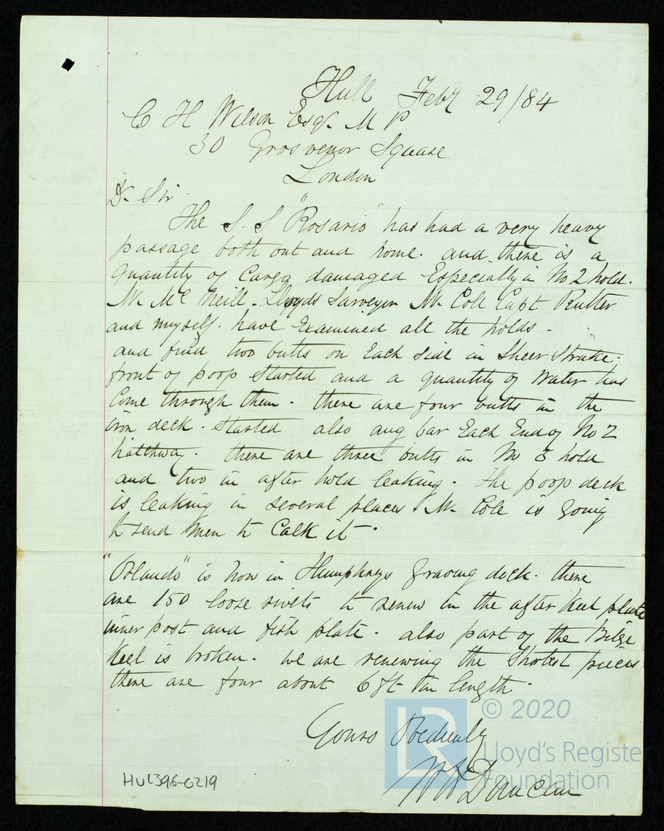 Hull Feby 29/84
C H Wilson Esqr M P
30 Grosvenor Square
London
Dr Sir
The S.S "Rosario" has had a very heavy
passage both out and home. and there is a
quantity of Cargo damaged Especially in No 2 hold.
Mr Mc Neill. Lloyds Surveyor Mr Cole Capt Rutter
and myself. have Examined all the holds.
and find two butts on Each Side in Sheer Strake.
front of poop Started and a quantity of Water has
Come through them. there are four butts in the
iron deck. Started also ang bar Each End of No 2
hatchway. there are three butts in No 3 hold
and two in after hold leaking. the poop deck
is leaking in several places Mr Cole is going
to send men to Calk it.
"Orlando" is now in Humphreys Graving dock. there
are 150 loose rivets to renew in the after Keel plate
inner post and fish plate. also part of the Bilge
Keel is broken. we are renewing the Shotest pieces
there are four about 6 ft in length.
Yours Obediently
W H Duncan
HUL396-0219
LR
© 2020
Lloyd's Register
Foundation